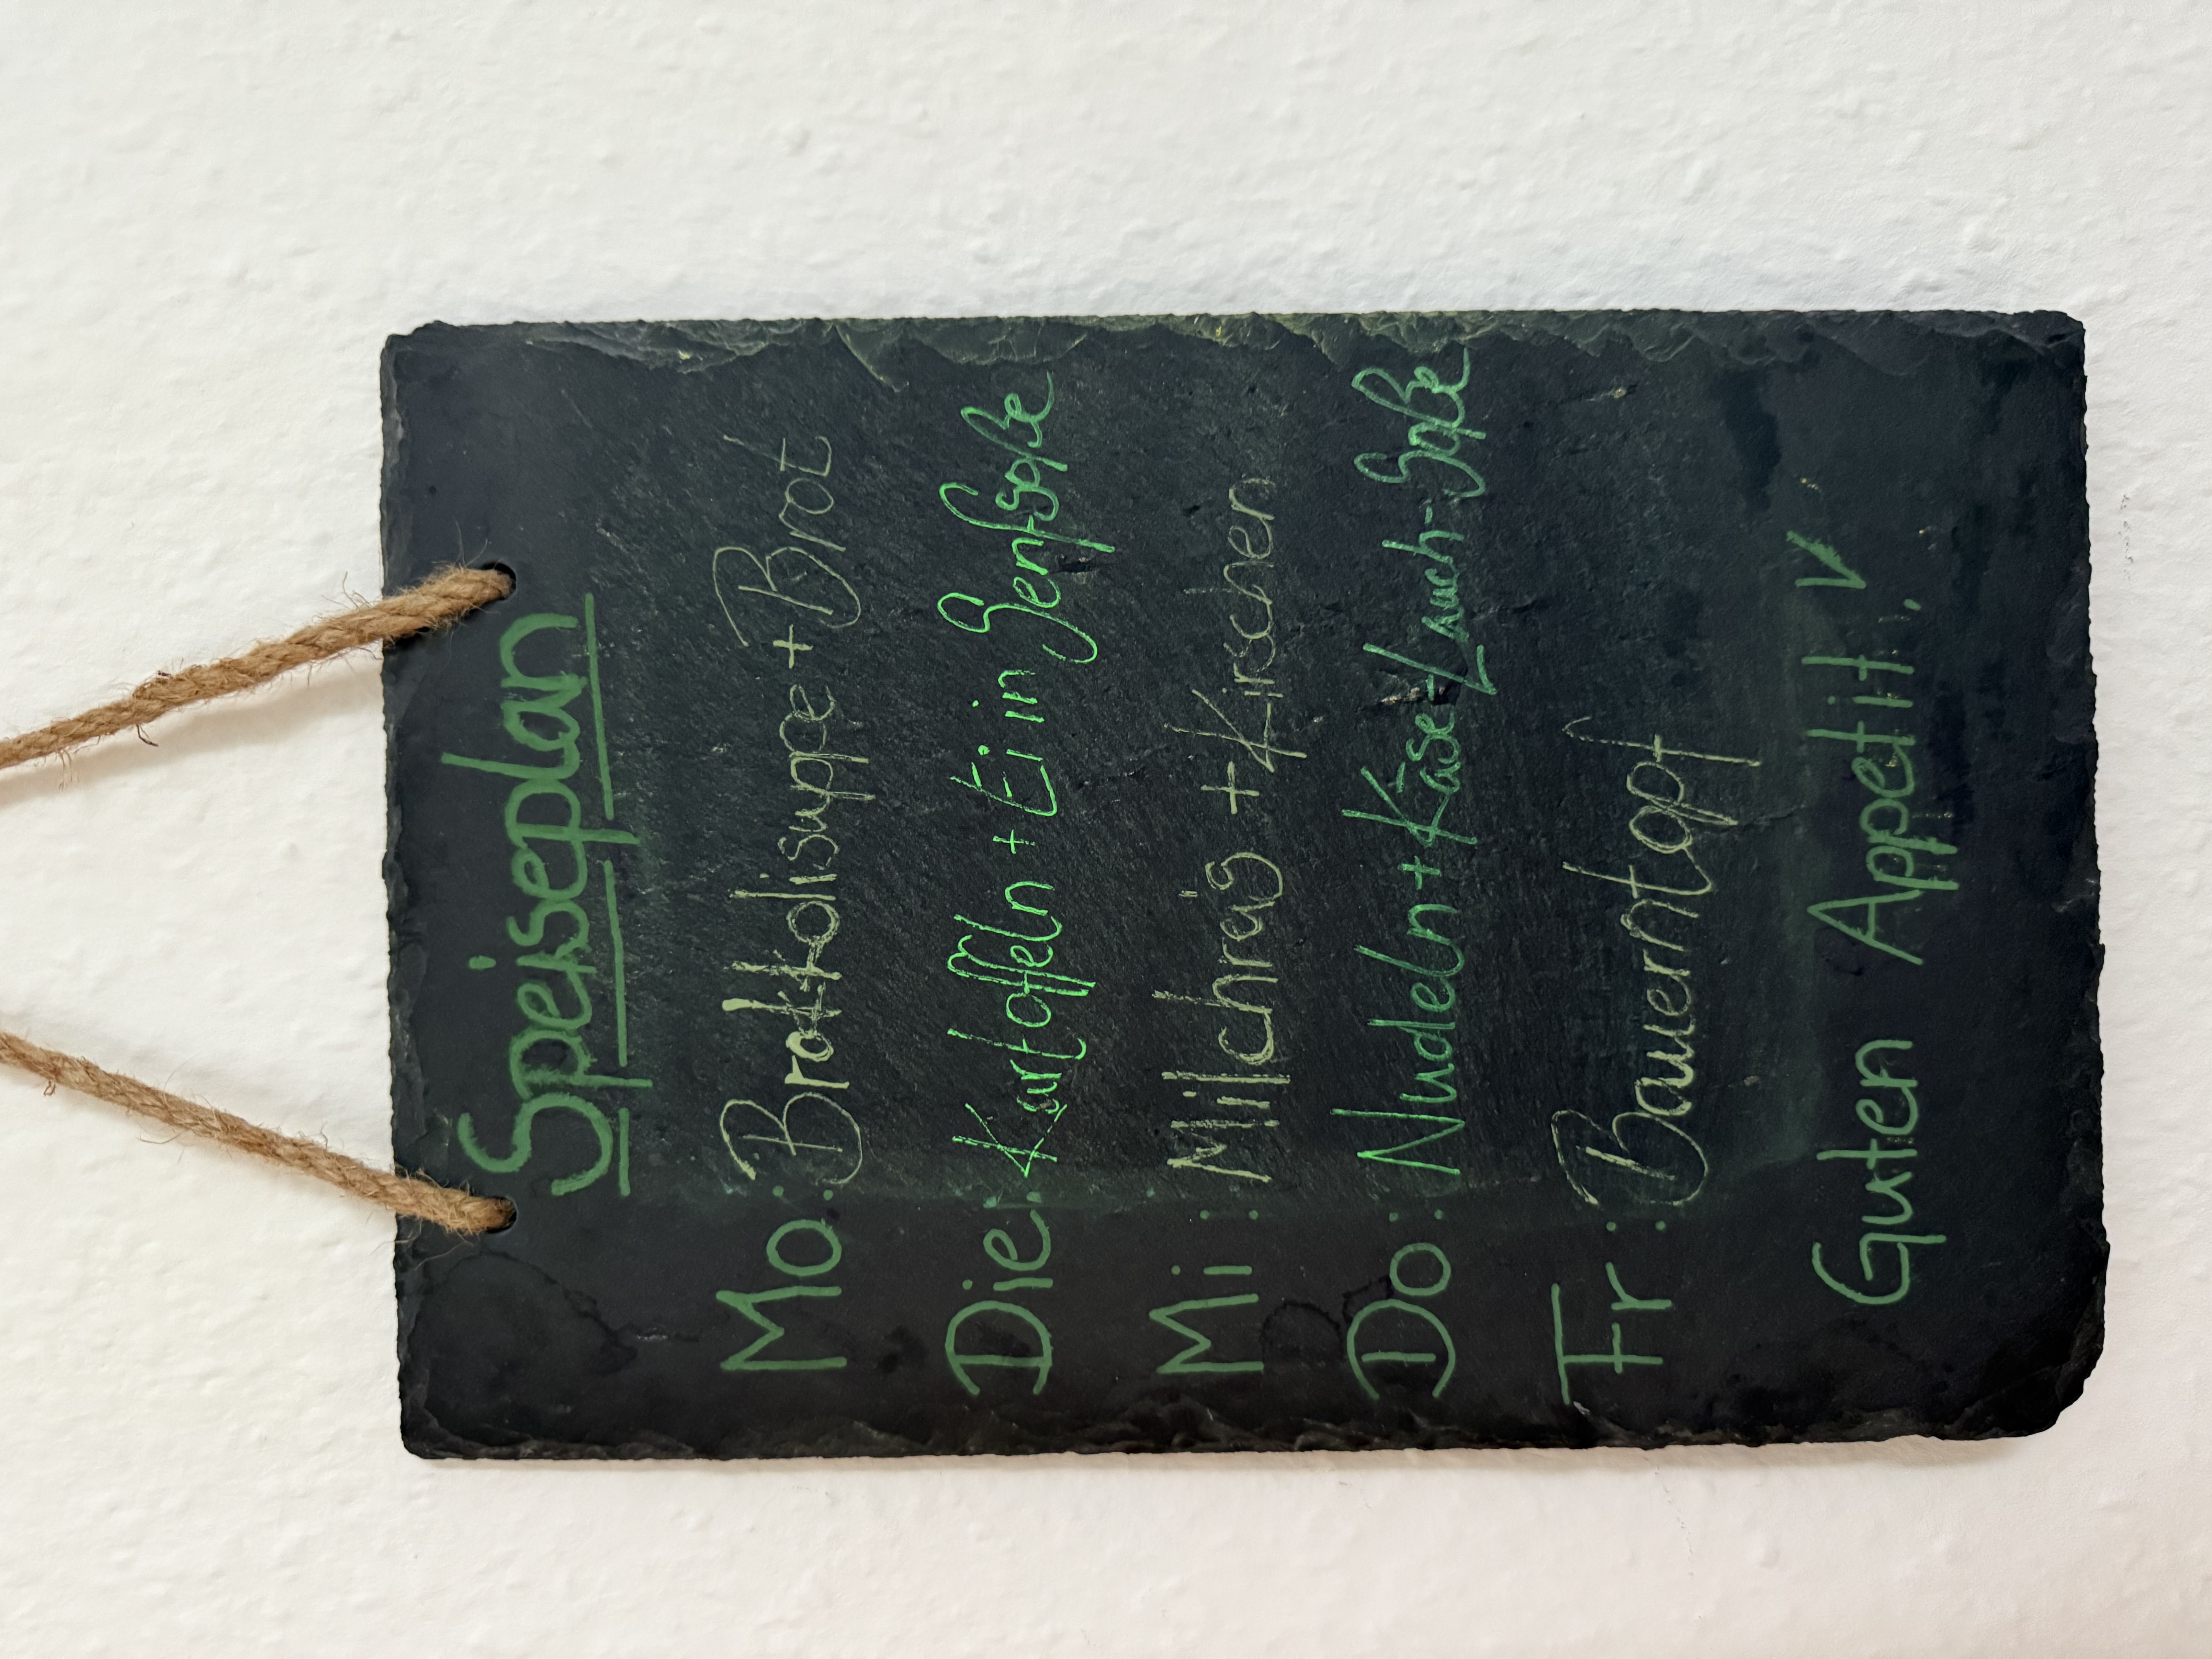 Speiseplan
Mo: Brokkolisuppe + Brot
Die: Kartoffeln + Ei in Senfsoße
Mi: Milchreis + Kirschen
Do: Nudeln + Käse-Lauch-Soße
Fr: Bauerntopf
Guten Appetit!